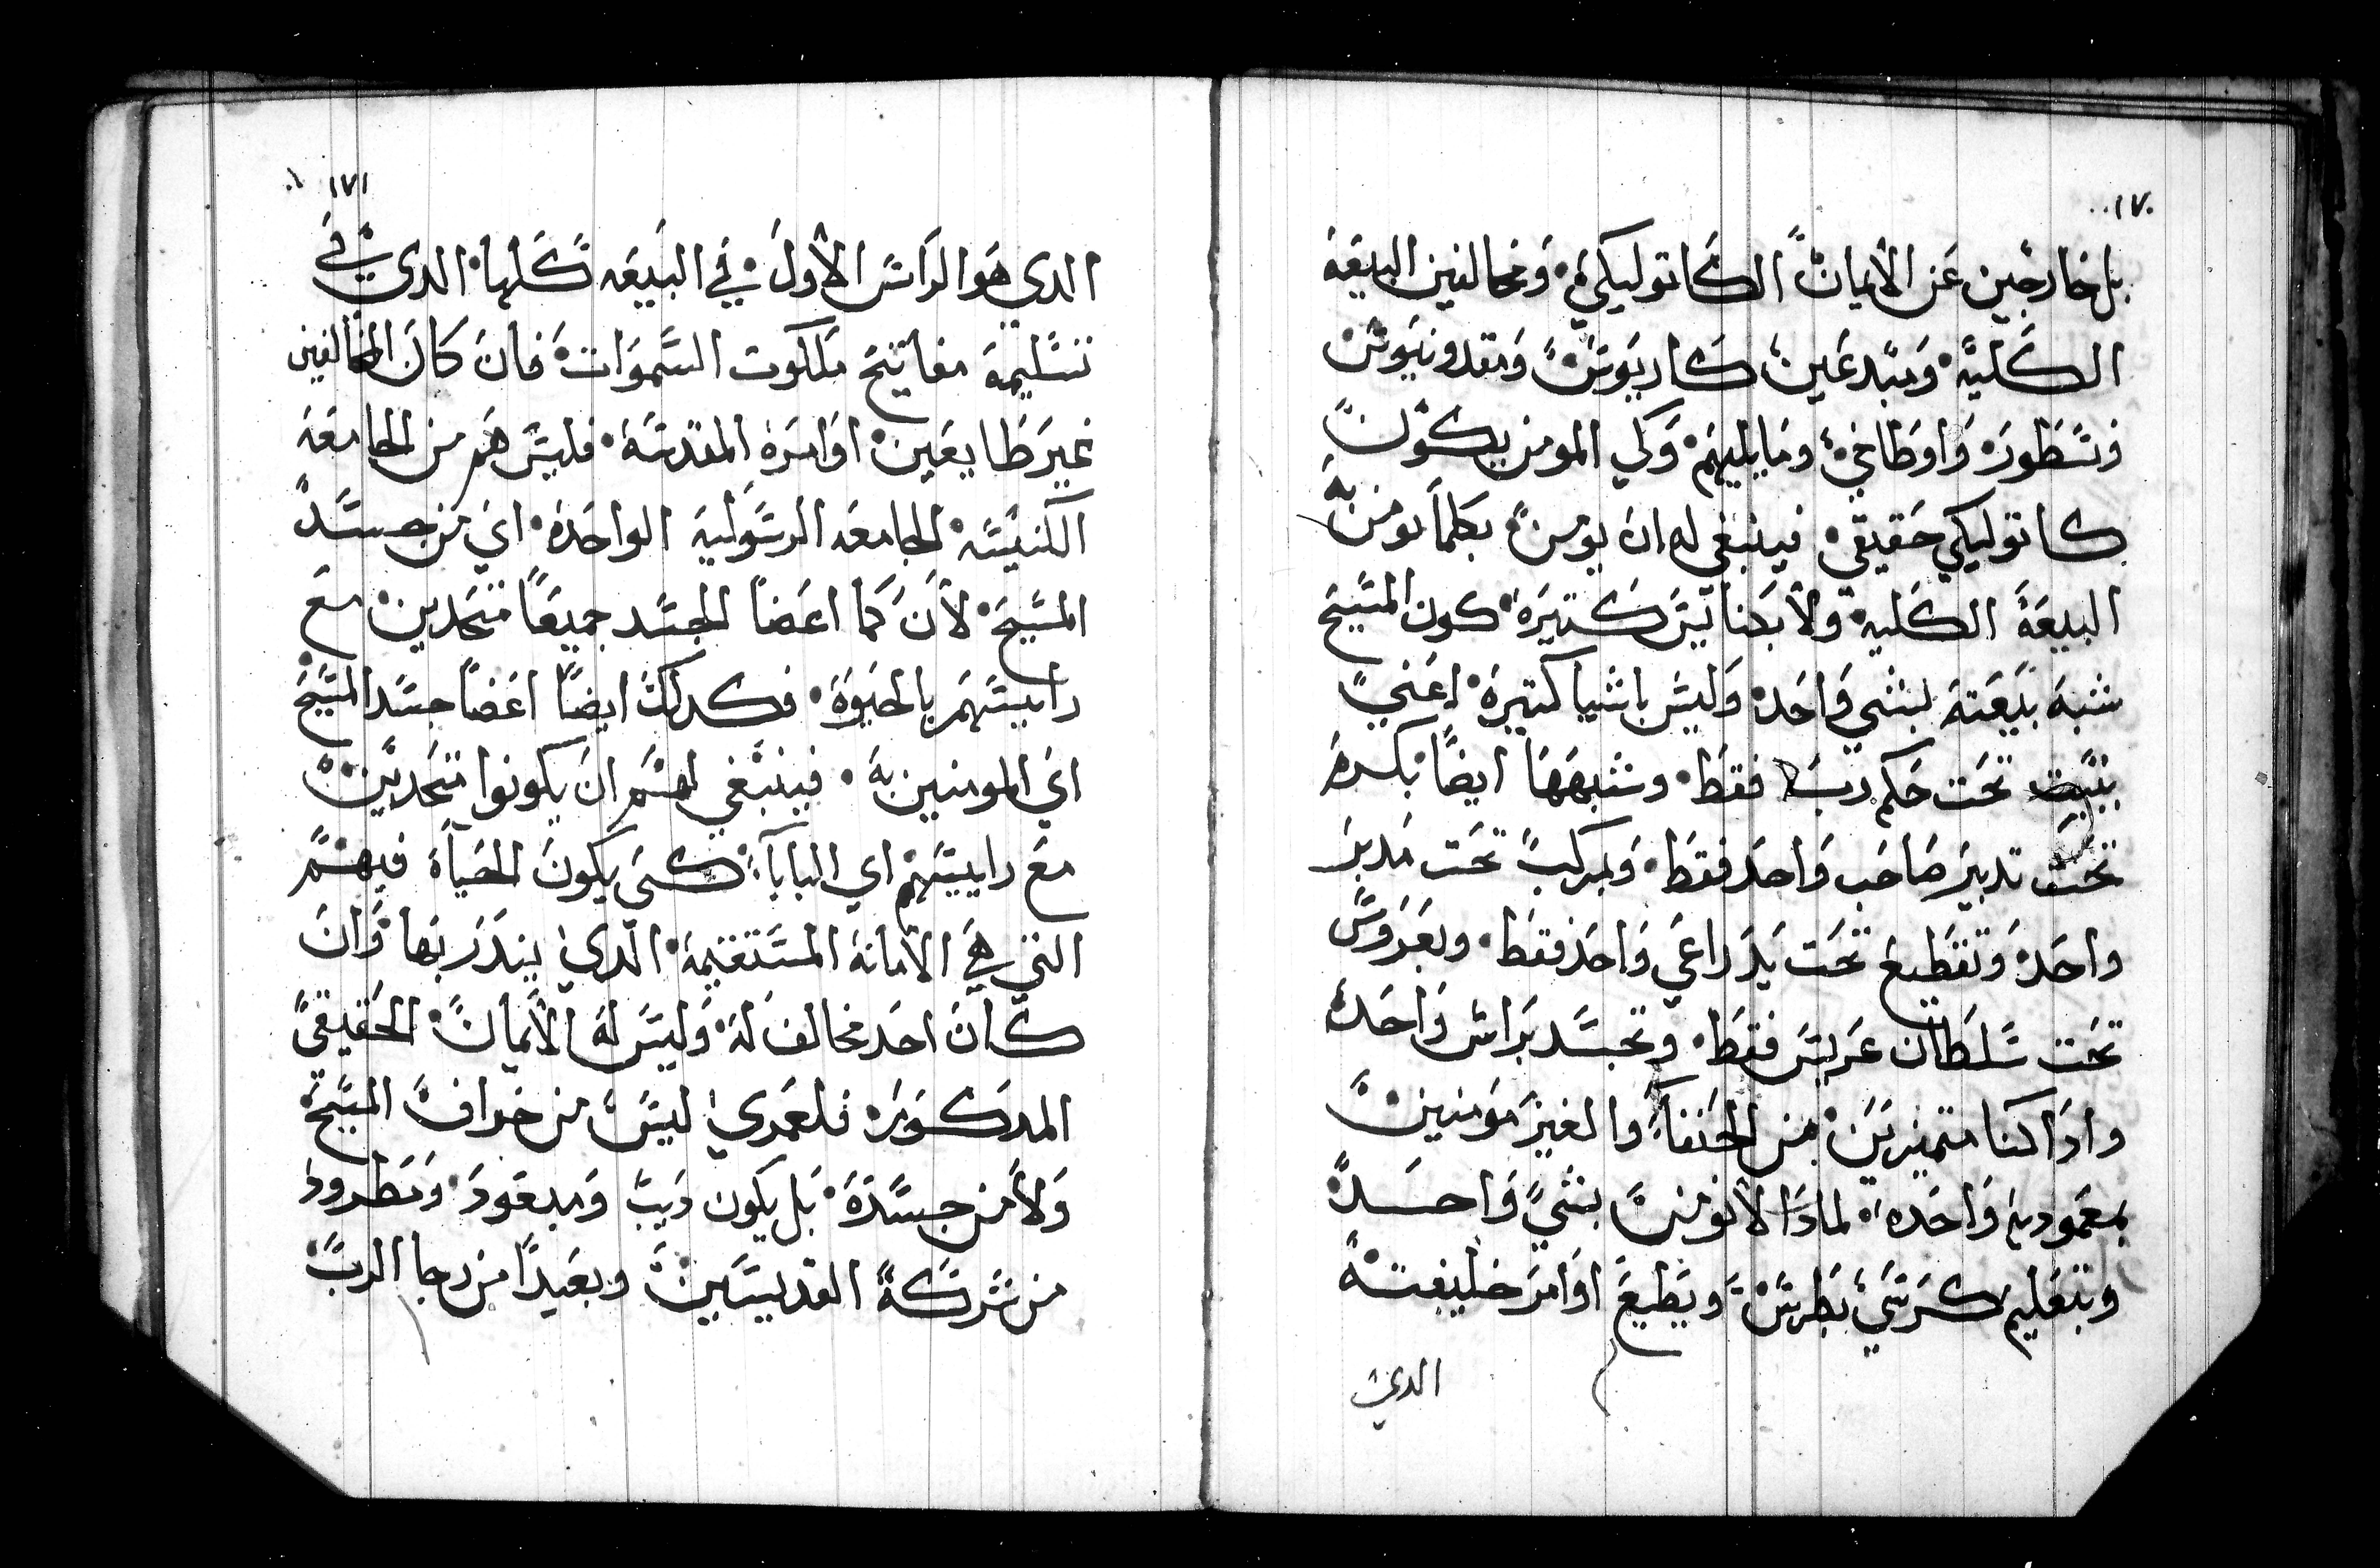 ١٧٠
بل خارجين عن الأيمان الكاتوليكي وَمخالفين البيعَة
الكليّة وَمبدعَين كاريوس وَمقدونيوس
فنسَطورَ وَاوطاخي وما يليهم وَلكي المومن يكون
كاتوليكي حَقيقي فينبغي له ان يومن بكلما تومن به
البيعَة الكليه ولأبضَاليسَ كتيرَة كون المسَيح
شبهَ بَيعَتهَ بشي وَاحَد وَليسَ باشيا كتيرة اعَني
ببيت تحَت حَكم ربَ فقط وشبهَهَا ايضًا بكرمَ
تحَت تدبيرَ صَاحَب وَاحدَ فقط وَبمركب تحَت مَدبرَ
واحَد وَبقطيع تحَت يَدَ راعَي وَاحَد فقط وبعَروَس
تحَت سَلطان عَريسَ فقط وبجسَد برَاس وَاحَد
وادَا كنا متميزيَن من الحَنفَاءَ والغيرَ مَومنين
بمعَموديه وَاحَده لمادَا لأ نومن بشي وَاحَد
وبتعَليم كرَسَي بَطرسَ ويَطيعَ اوَامرَ خليفتهَ
الدي
١٧١
الدي هَوا الرَاسَ الأولَ في البَيعَه كَلها الدي في
تسَليمهَ مفاتيحَ ملكوت السَموَات فان كان المخالفين
غيرَ طَايعَين اوَامرَة المقدسَة فليسَ هَم من الجامعَة
الكنيسَه الجامعَه الرسَوليَة الواحَدة ايَ من جسَد
المسَيحَ لأنَ كما اعَضَا الجسَد جميعَاً متحَدين معَ
راييسَهَم بالحَيوَة فكدلك ايضًا اعَضَا جسَد المسَيحَ
ايَ المومنين بهَ فينبَغي لهَم انَ يكونوا متحَدَين
معَ راييسَهم اي البابا كَي يكونَ الحَياة فيهَم
التي هَي الأمانة المسَتقيمة الدي يندَرَ بهَا وَان
كان احَد مخالف لهَ وَليسَ لهَ الأيمان الحَقيقي
المدكورَ فلعمَري ليسَ من خراف المسَيحَ
وَلأ من جسَدَهَ بَل يكون دَيبَ وَمبعَودَ وَمَطَرودَ
من شرَكَة القديسَين وبعَيدًا من رجا الربَ